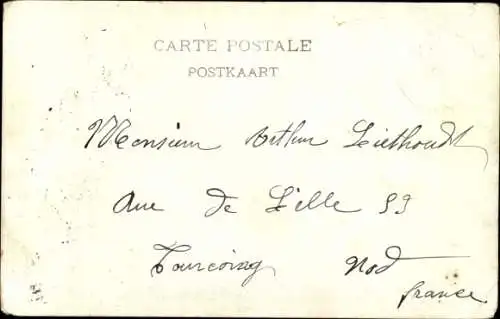 CARTE POSTALE
POSTKAART
Monsieur Arthur Liethoudt
Rue de Lille 59
Tourcoing Nod
france